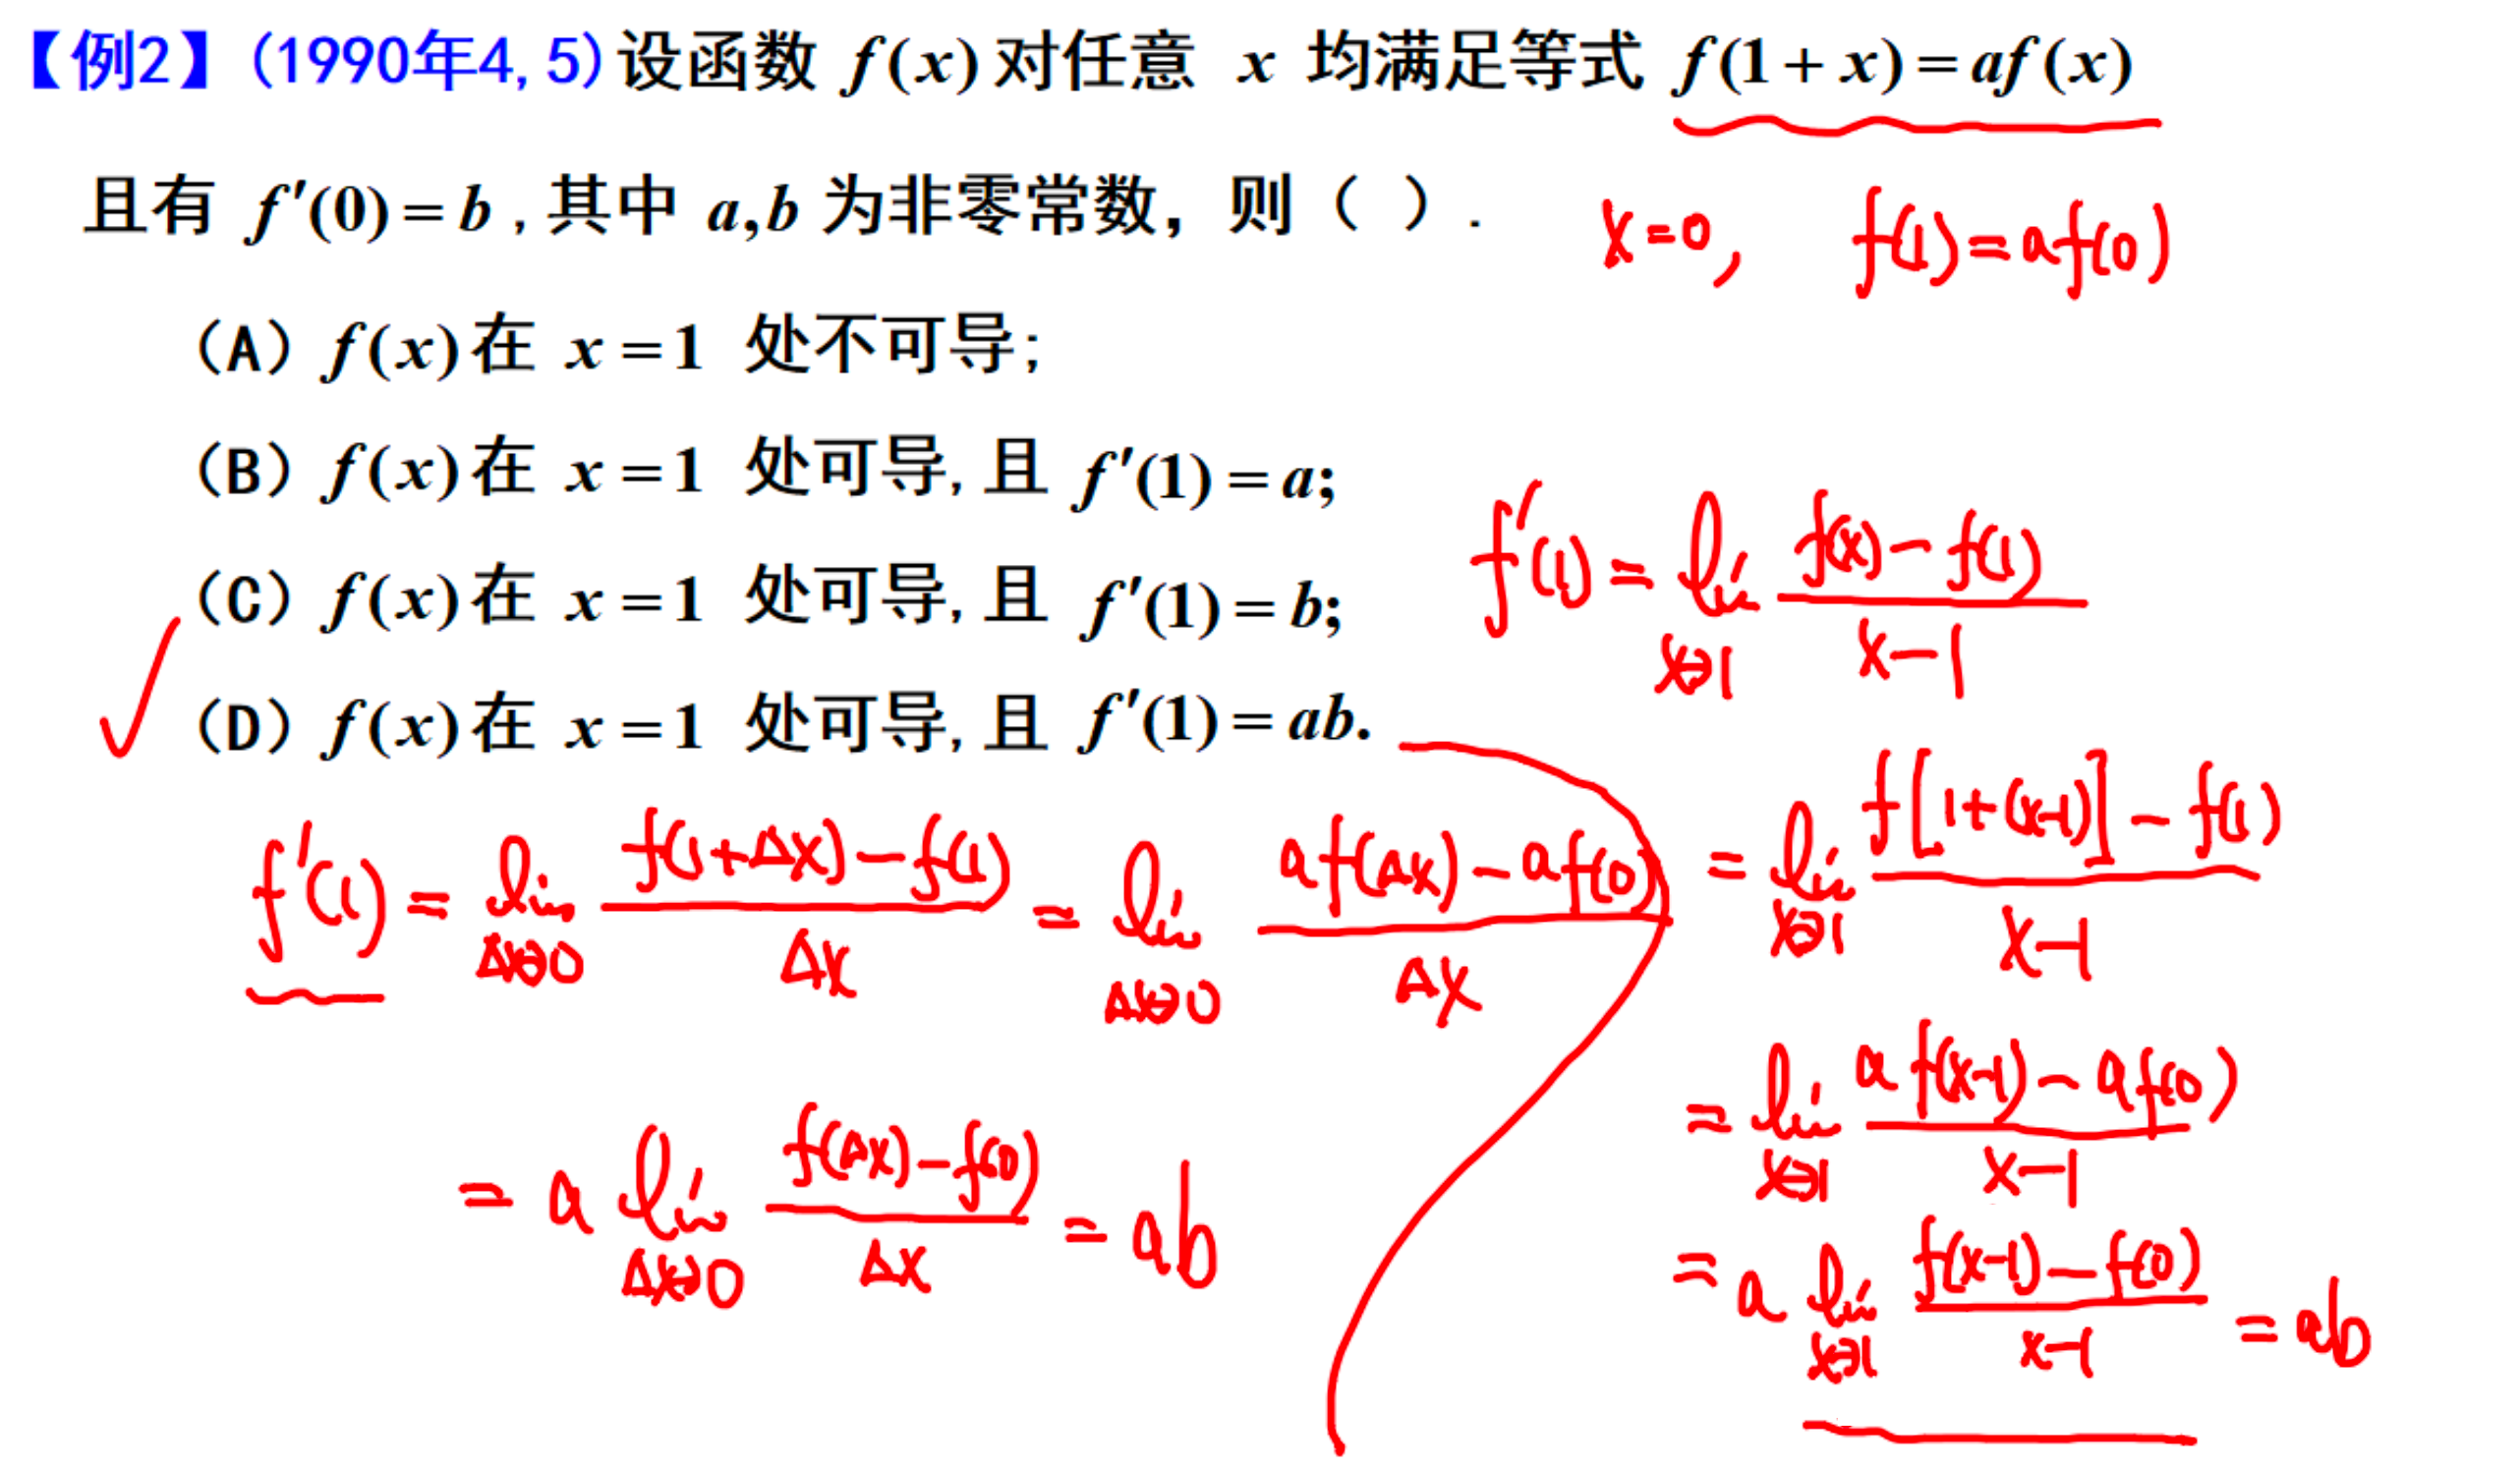 【例2】(1990年4,5)设函数 f(x)对任意 x 均满足等式 f(1+x)=af(x)
且有 f′(0)=b,其中 a,b 为非零常数，则（ ）.
x=0, f(1)=af(0)
（A）f(x)在 x=1 处不可导;
（B）f(x)在 x=1 处可导,且 f′(1)=a;
（C）f(x)在 x=1 处可导,且 f′(1)=b;
（D）f(x)在 x=1 处可导,且 f′(1)=ab.
f′(1)=lim x→1 (f(x)-f(1))/(x-1)
=lim x→1 (f[1+(x-1)]-f(1))/(x-1)
=lim x→1 (af(x-1)-af(0))/(x-1)
=a lim x→1 (f(x-1)-f(0))/(x-1) =ab
f′(1)=lim Δx→0 (f(1+Δx)-f(1))/Δx =lim Δx→0 (af(Δx)-af(0))/Δx
=a lim Δx→0 (f(Δx)-f(0))/Δx =ab